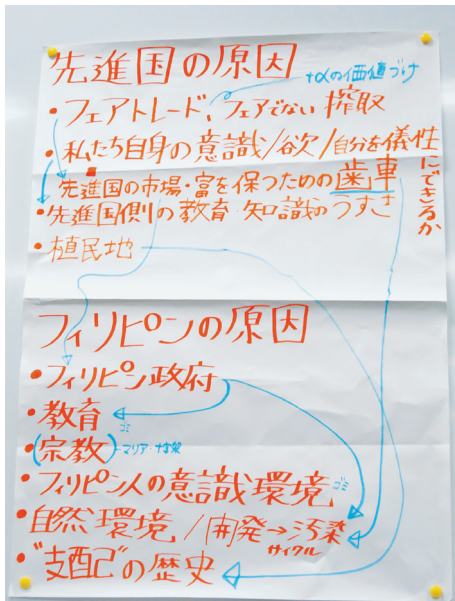 先進国の原因
+αの価値づけ
・フェアトレード、フェアでない搾取
・私たち自身の意識/欲/自分を儀性にできるか
先進国の市場・富を保つための歯車
・先進国側の教育・知識のうすさ
・植民地
フィリピンの原因
・フィリピン政府
・教育
ゴミ
・(宗教)-マリア・十字架
・フィリピン人の意識環境 ゴミ
・自然環境/開発→汚染
サイクル
・"支配"の歴史